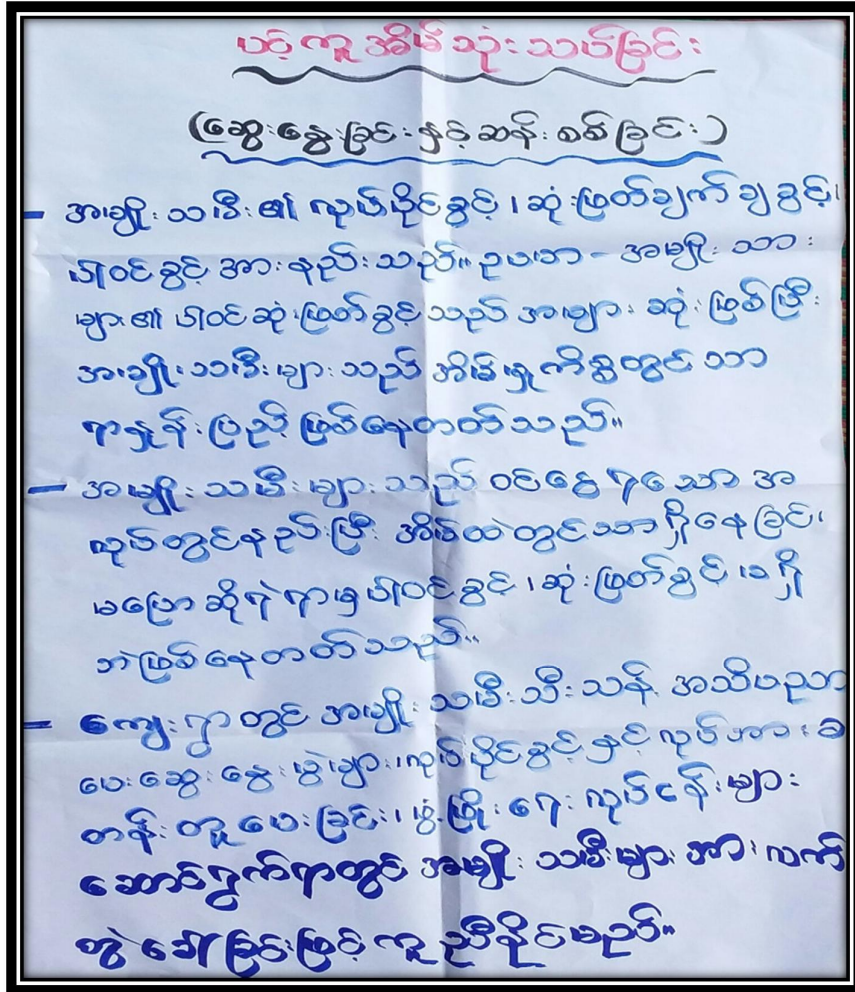 ပင့်ကူအိမ်သုံးသပ်ခြင်း
(ဆွေးနွေးခြင်းနှင့်ဆန်းစစ်ခြင်း)
- အမျိုးသမီး၏ လုပ်ပိုင်ခွင့်၊ ဆုံးဖြတ်ချက်ချခွင့်၊
ပါဝင်ခွင့် အားနည်းသည်။ ဥပမာ - အမျိုးသား
များ၏ ပါဝင်ဆုံးဖြတ်ခွင့်သည် အများဆုံးဖြစ်ပြီး
အမျိုးသမီးများသည် အိမ်မှုကိစ္စတွင်သာ
ရာနှုန်းပြည့်ဖြစ်နေတတ်သည်။
- အမျိုးသမီးများသည် ဝင်ငွေရသော အ
လုပ်တွင်နည်းပြီး အိမ်ထဲတွင်သာရှိနေခြင်း၊
မပြောဆိုရဲရာမှ ပါဝင်ခွင့်၊ ဆုံးဖြတ်ခွင့် မရှိ
ဘဲဖြစ်နေတတ်သည်။
- ကျေးရွာတွင် အမျိုးသမီးသီးသန့် အသိပညာ
ပေးဆွေးနွေးပွဲများ၊ လုပ်ပိုင်ခွင့်နှင့်လုပ်အားခ
တန်းတူပေးခြင်း၊ ဖွံ့ဖြိုးရေးလုပ်ငန်းများ
ဆောင်ရွက်ရာတွင် အမျိုးသမီးများအားလက်
တွဲခေါ်ခြင်းဖြင့်ကူညီနိုင်မည်။